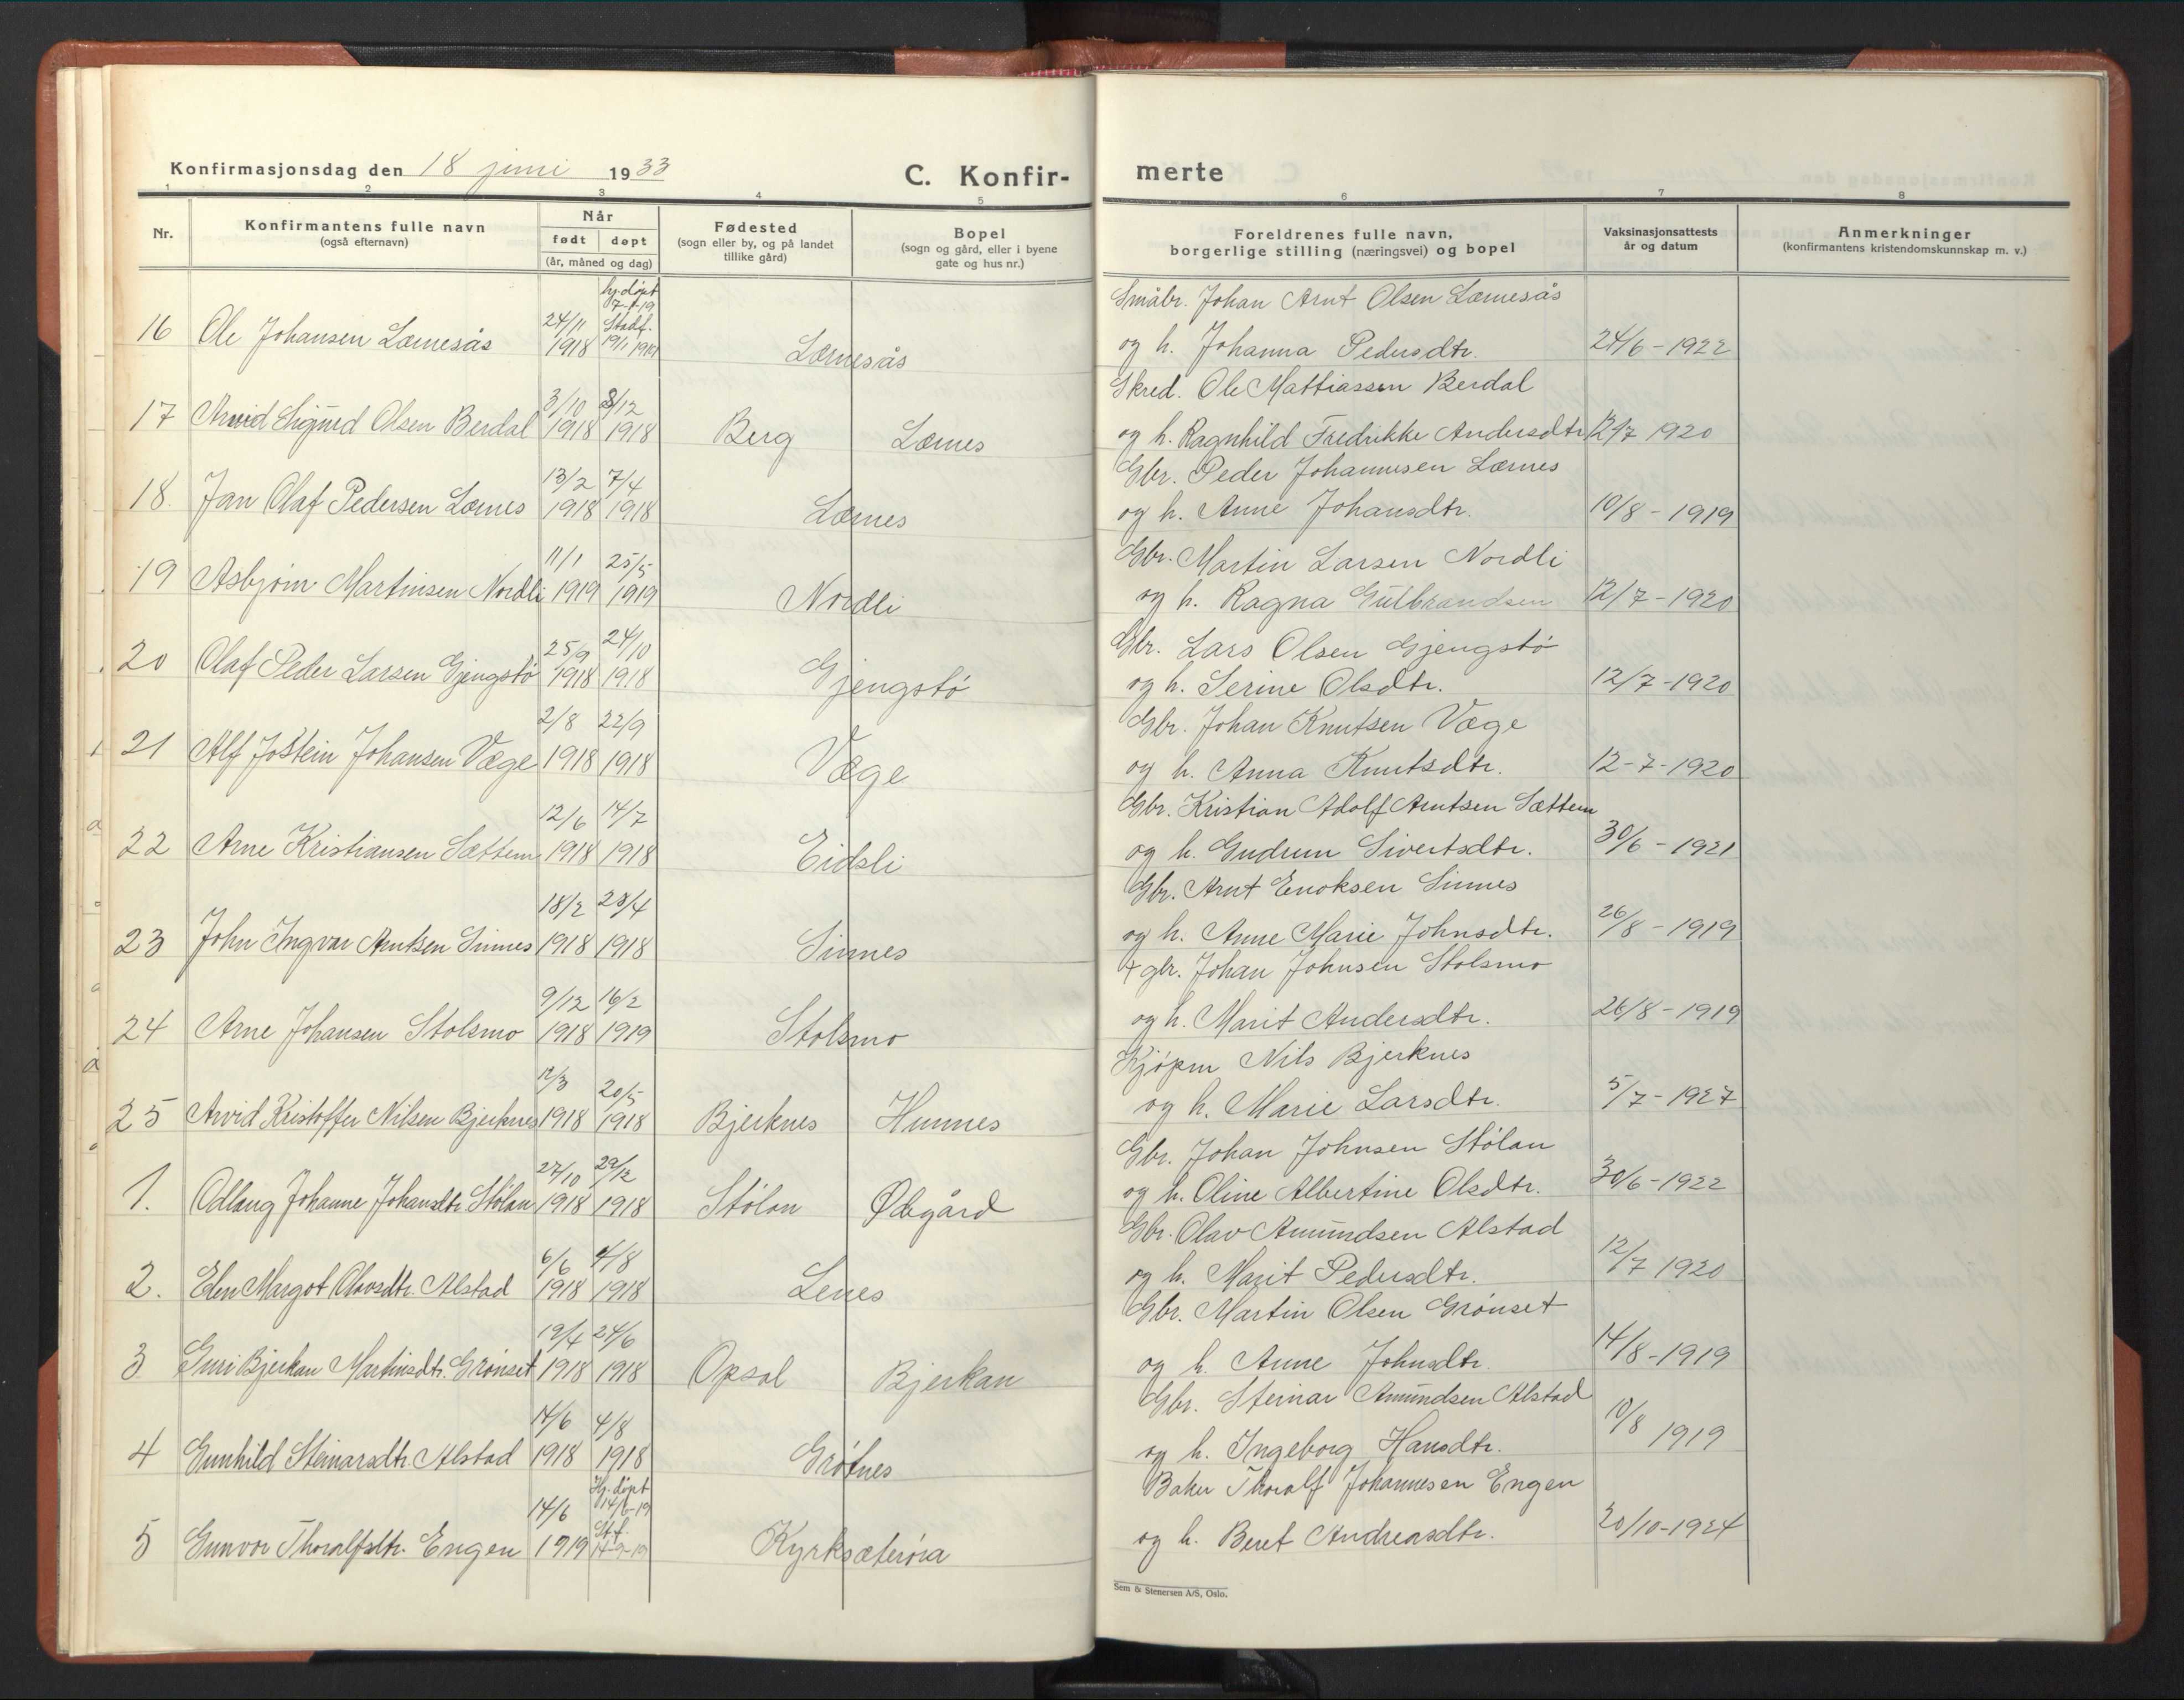 Konfirmasjonsdag den 18 juni 1933
C. Konfir-
merte
1 2 3 4 5 6 7 8
Nr.
Konfirmantens fulle navn
(også efternavn)
Når
født døpt
(år, måned og dag)
Fødested
(sogn eller by, og på landet
tillike gård)
Bopel
(sogn og gård, eller i byene
gate og hus nr.)
Foreldrenes fulle navn,
borgerlige stilling (næringsvei) og bopel
Vaksinasjonsattests
år og datum
Anmerkninger
(konfirmantens kristendomskunnskap m. v.)
hj. døpt
24/11 Stadf. Småbr. Johan Arnt Olsen Lærnesås
16 Ole Johansen Lærnesås 1918 Lærnesås og h. Johanna Pedersdtr. 24/6 - 1922
3/10 8/12 Skred. Ole Mattiassen Berdal
17 Arvid Sigurd Olsen Berdal 1918 1918 Berg Lærnes og h. Ragnhild Fredrikke Andersdtr 12/7 1920
13/2 7/4 Gbr. Peder Johannesen Lærnes
18. Jan Olaf Pedersen Lærnes 1918 1918 Lærnes og h. Anne Johansdtr. 10/8 - 1919
11/1 25/5 Gbr. Martin Larsen Nordli
19 Asbjørn Martinsen Nordli 1919 1919 Nordli og h. Ragna Gulbrandsen 12/7 - 1920
25/9 24/10 Gbr. Lars Olsen Gjengstø
20 Olaf Peder Larsen Gjengstø 1918 1918 Gjengstø og h. Serine Olsdtr. 12/7 - 1920
2/8 22/9 Gbr. Johan Knutsen Væge
21 Alf Jostein Johansen Væge 1918 1918 Væge og h. Anna Knutsdtr. 12-7-1920
12/6 14/7 Gbr. Kristian Adolf Arntsen Sættem
22 Arne Kristiansen Sættem 1918 1918 Eidsli og h. Gudrun Sivertsdtr. 30/6 - 1921
18/2 28/4 Gbr. Arnt Enoksen Sinnes
23 John Ingvar Arntsen Sinnes 1918 1918 Sinnes og h. Anne Marie Johnsdtr. 26/8 - 1919
9/12 16/2 + gbr. Johan Johnsen Stolsmo
24 Arne Johansen Stolsmo 1918 1919 Stolsmo og h. Marit Andersdtr. 26/8 - 1919
12/3 20/5 Kjøpm Nils Bjerknes
25 Arvid Kristoffer Nilsen Bjerknes 1918 1918 Bjerknes Hunnes og h. Marie Larsdtr. 5/7 - 1927
27/10 29/12 Gbr. Johan Johnsen Stølan
1. Odlaug Johanne Johansdtr. Stølan 1918 1918 Stølan Ødegård og h. Oline Albertine Olsdtr. 30/6 - 1922
6/6 4/8 Gbr. Olav Amundsen Alstad
2. Elen Margot Olavsdtr. Alstad 1918 1918 Lenes og h. Marit Pedersdtr. 12/7 1920
19/4 24/6 Gbr. Martin Olsen Grønset
3 Guri Bjerkan Martinsdtr. Grønset 1918 1918 Opsal Bjerkan og h. Anne Johnsdtr. 14/8 - 1919
14/6 4/8 Gbr. Steinar Amundsen Alstad
4 Gunhild Steinarsdtr. Alstad 1918 1918 Grøtnes og h. Ingeborg Hansdtr. 10/8 1919
14/6 Hj. døpt 14/6-19 Baker Thoralf Johannesen Engen
5 Gunvor Thoralfsdtr. Engen 1919 St.f. Kyrksæterøra og h. Beret Andreasdtr. 20/10-1924
Sem & Stenersen A/S, Oslo.